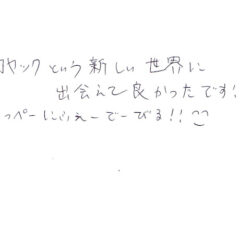 カヤックという新しい世界に
出会えて良かったです!
っぺーにふぇーでーびる!!